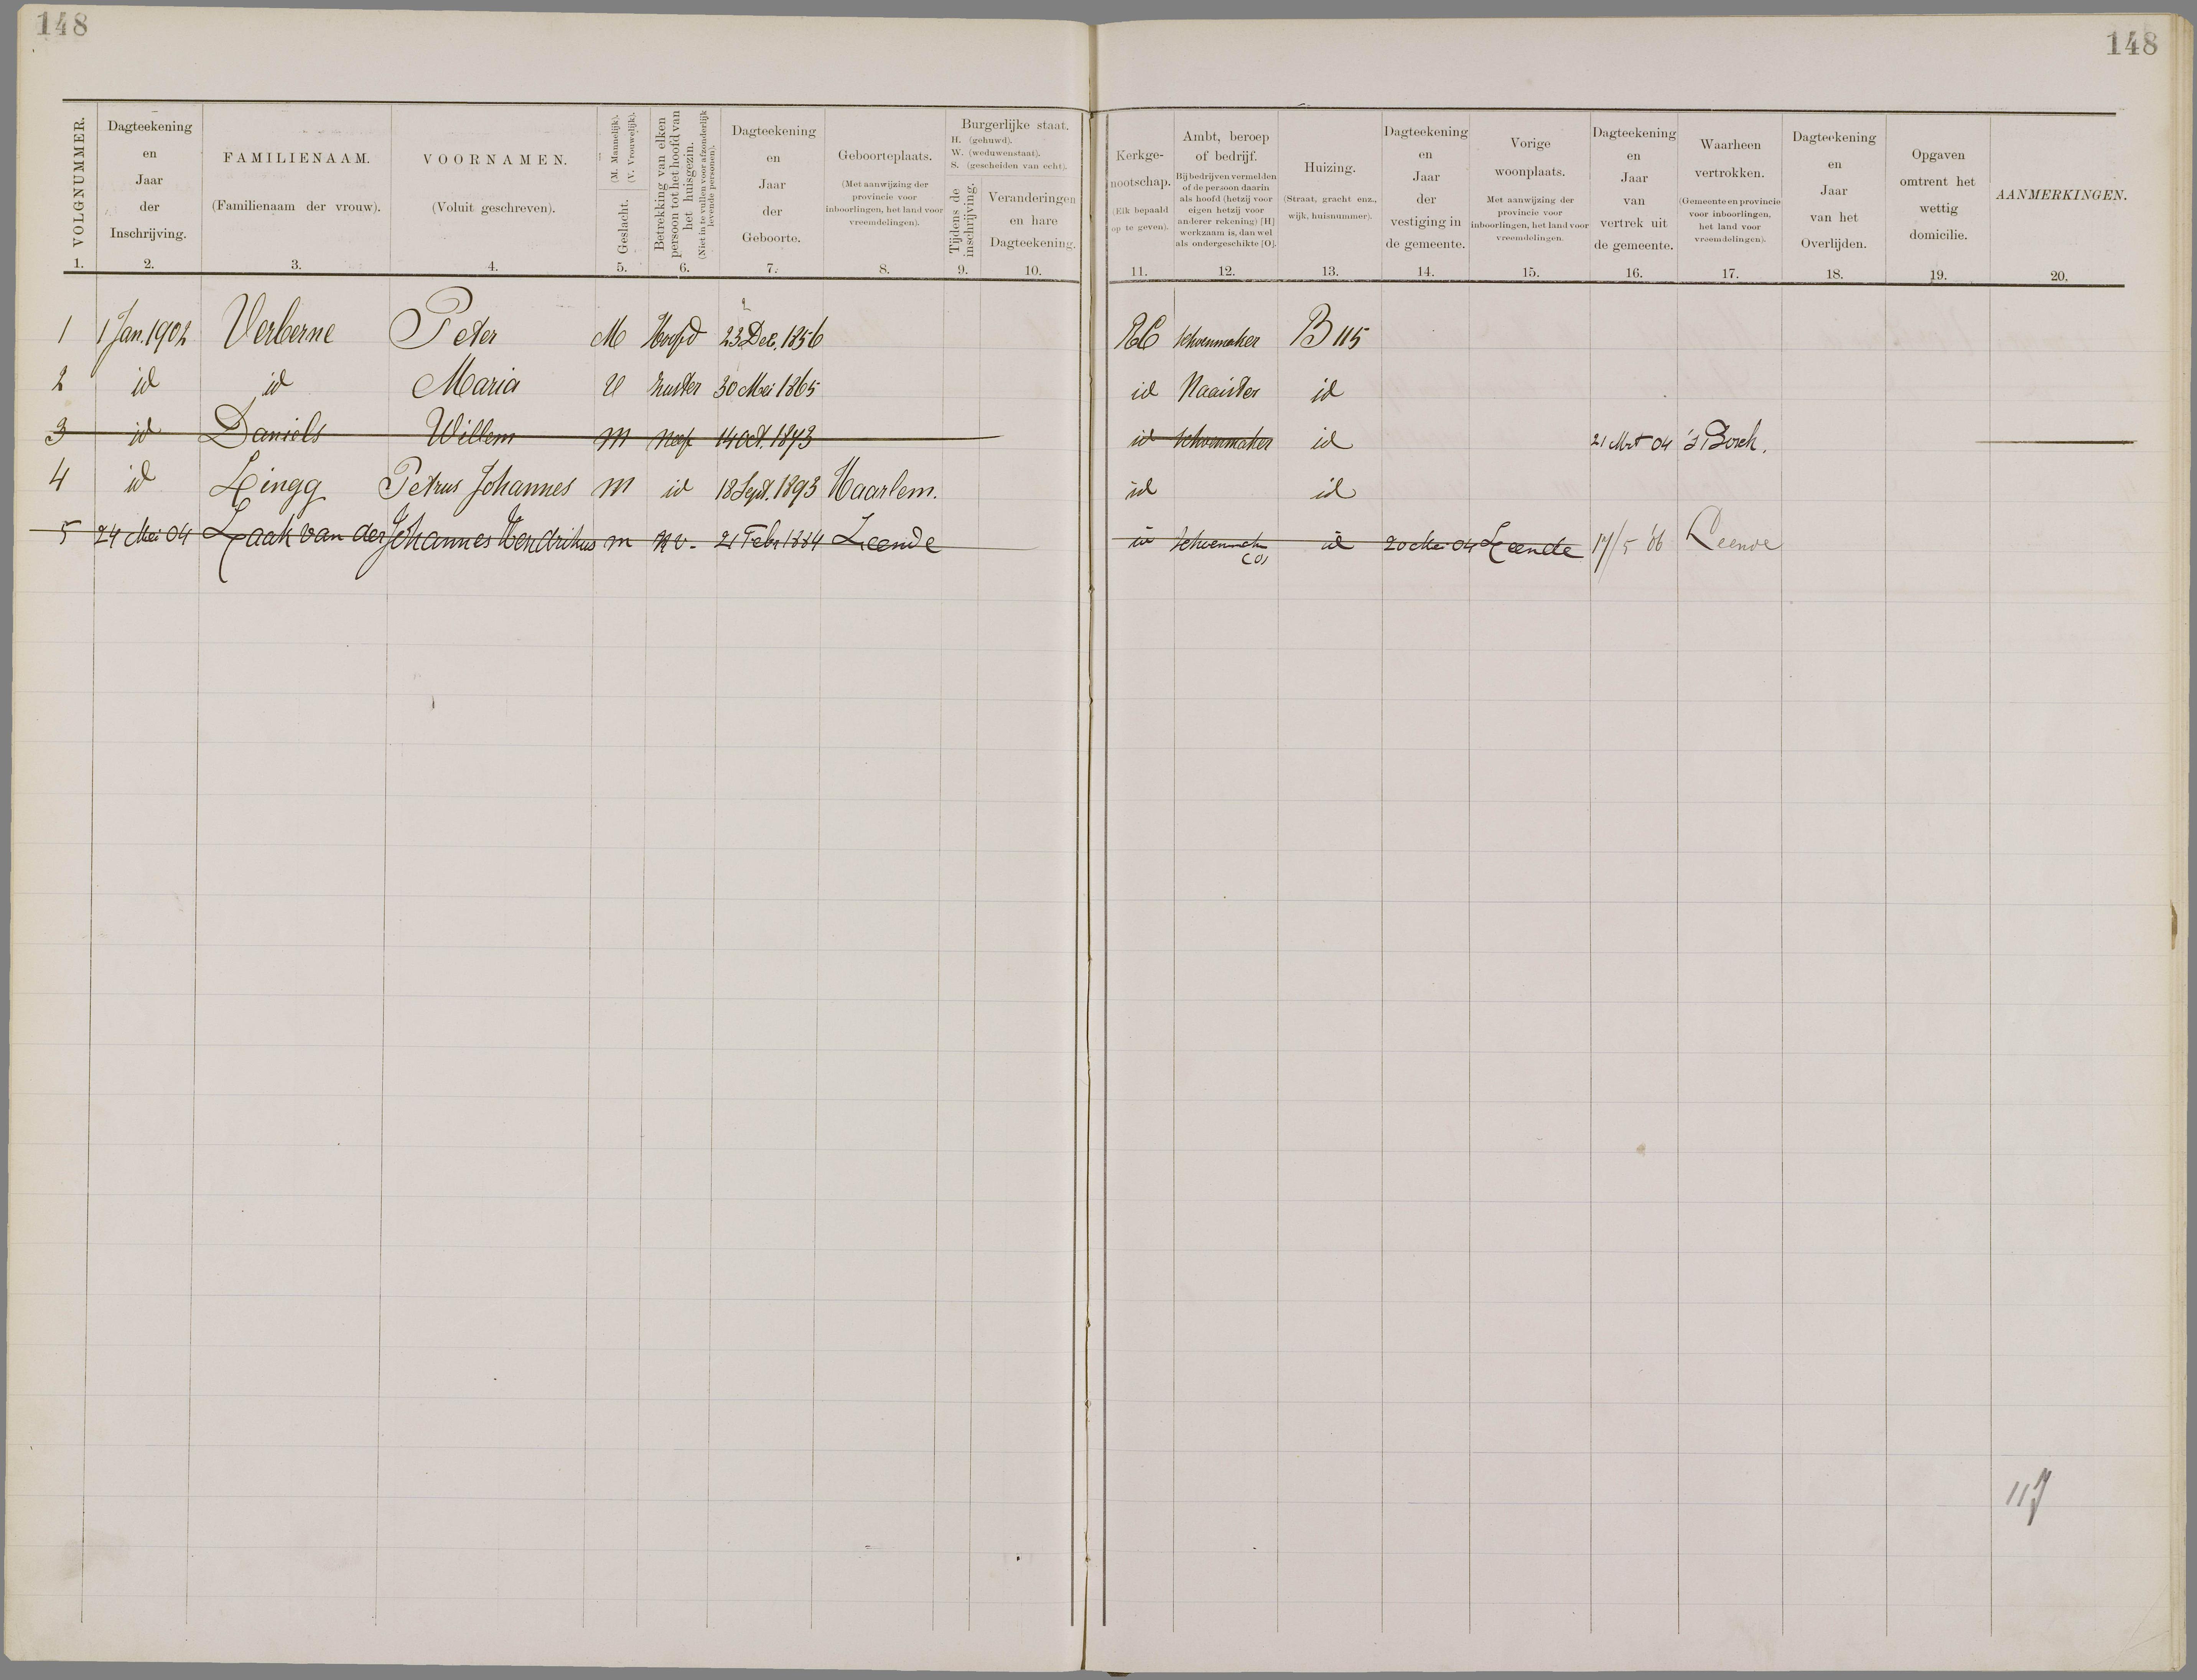 148
148
VOLGNUMMER.
1.
Dagteekening
en
Jaar
der
Inschrijving.
2.
FAMILIENAAM.
(Familienaam der vrouw).
3.
VOORNAMEN.
(Voluit geschreven).
4.
Geslacht.
(M. Mannelijk).
(V. Vrouwelijk).
5.
Betrekking van elken
persoon tot het hoofd van
het huisgezin.
(Niet in te vullen voor afzonderlijk
levende personen).
6.
Dagteekening
en
Jaar
der
Geboorte.
7.
Geboorteplaats.
(Met aanwijzing der
provincie voor
inboorlingen, het land voor
vreemdelingen).
8.
Burgerlijke staat.
H. (gehuwd).
W. (weduwenstaat).
S. (gescheiden van echt).
Tijdens de
inschrijving.
9.
Veranderingen
en hare
Dagteekening.
10.
Kerkge-
nootschap.
(Elk bepaald
op te geven).
11.
Ambt, beroep
of bedrijf.
Bij bedrijven vermelden
of de persoon daarin
als hoofd (hetzij voor
eigen hetzij voor
anderer rekening) [H]
werkzaam is, dan wel
als ondergeschikte [O].
12.
Huizing.
(Straat, gracht enz.,
wijk, huisnummer).
13.
Dagteekening
en
Jaar
der
vestiging in
de gemeente.
14.
Vorige
woonplaats.
Met aanwijzing der
provincie voor
inboorlingen, het land voor
vreemdelingen.
15.
Dagteekening
en
Jaar
van
vertrek uit
de gemeente.
16.
Waarheen
vertrokken.
(Gemeente en provincie
voor inboorlingen,
het land voor
vreemdelingen).
17.
Dagteekening
en
Jaar
van het
Overlijden.
18.
Opgaven
omtrent het
wettig
domicilie.
19.
AANMERKINGEN.
20.
1 1 Jan. 1902 Verberne Peter M Hoofd 23 Dec. 1856 RC schoenmaker B 115
2 id id Maria V zuster 30 Mei 1865 id Naaister id
3 id Daniels Willem m neef 14 Oct. 1873 id schoenmaker id 21 Mrt 04 's Bosch.
4 id Lingg Petrus Johannes m id 18 Sept. 1893 Haarlem. id id
5 24 Mei 04 Laak van der Johannes Hendrikus m kv. 21 Febr 1884 Leende id id 20 Mei 04 Leende 17/5 06 Leende
117